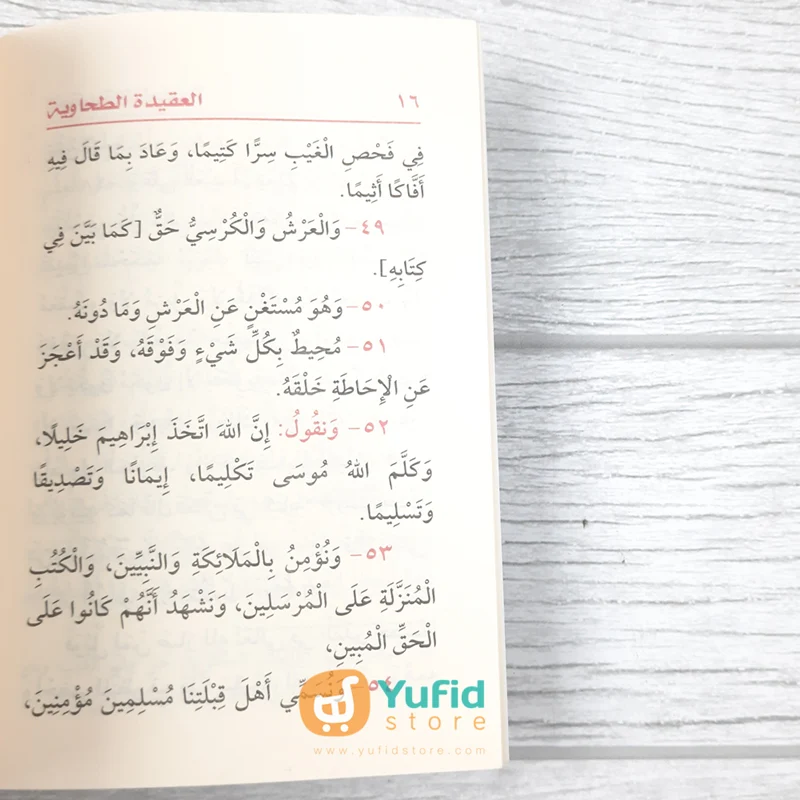 ١٦ العقيدة الطحاوية
فِي فَحْصِ الْغَيْبِ سِرًّا كَتِيمًا، وَعَادَ بِمَا قَالَ فِيهِ
أَفَّاكًا أَثِيمًا.
٤٩- وَالْعَرْشُ وَالْكُرْسِيُّ حَقٌّ [كَمَا بَيَّنَ فِي
كِتَابِهِ].
٥٠- وَهُوَ مُسْتَغْنٍ عَنِ الْعَرْشِ وَمَا دُونَهُ.
٥١- مُحِيطٌ بِكُلِّ شَيْءٍ وَفَوْقَهُ، وَقَدْ أَعْجَزَ
عَنِ الْإِحَاطَةِ خَلْقَهُ.
٥٢- وَنَقُولُ: إِنَّ اللهَ اتَّخَذَ إِبْرَاهِيمَ خَلِيلًا،
وَكَلَّمَ اللهُ مُوسَى تَكْلِيمًا، إِيمَانًا وَتَصْدِيقًا
وَتَسْلِيمًا.
٥٣- وَنُؤْمِنُ بِالْمَلَائِكَةِ وَالنَّبِيِّينَ، وَالْكُتُبِ
الْمُنَزَّلَةِ عَلَى الْمُرْسَلِينَ، وَنَشْهَدُ أَنَّهُمْ كَانُوا عَلَى
الْحَقِّ الْمُبِينِ،
٥٤- وَنُسَمِّي أَهْلَ قِبْلَتِنَا مُسْلِمِينَ مُؤْمِنِينَ،
Yufid
store
www.yufidstore.com